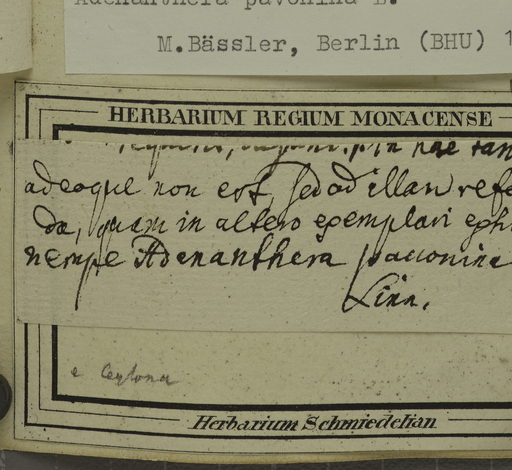 Adenanthera pavonina L.
M.Bässler, Berlin (BHU) 1
HERBARIUM REGIUM MONACENSE
in hac
adeoque non est, sed ad illam refe
da, quam in altero exemplari exhi
nempe Adenanthera pavonina
Linn.
e Ceylona
Herbarium Schmiedelian